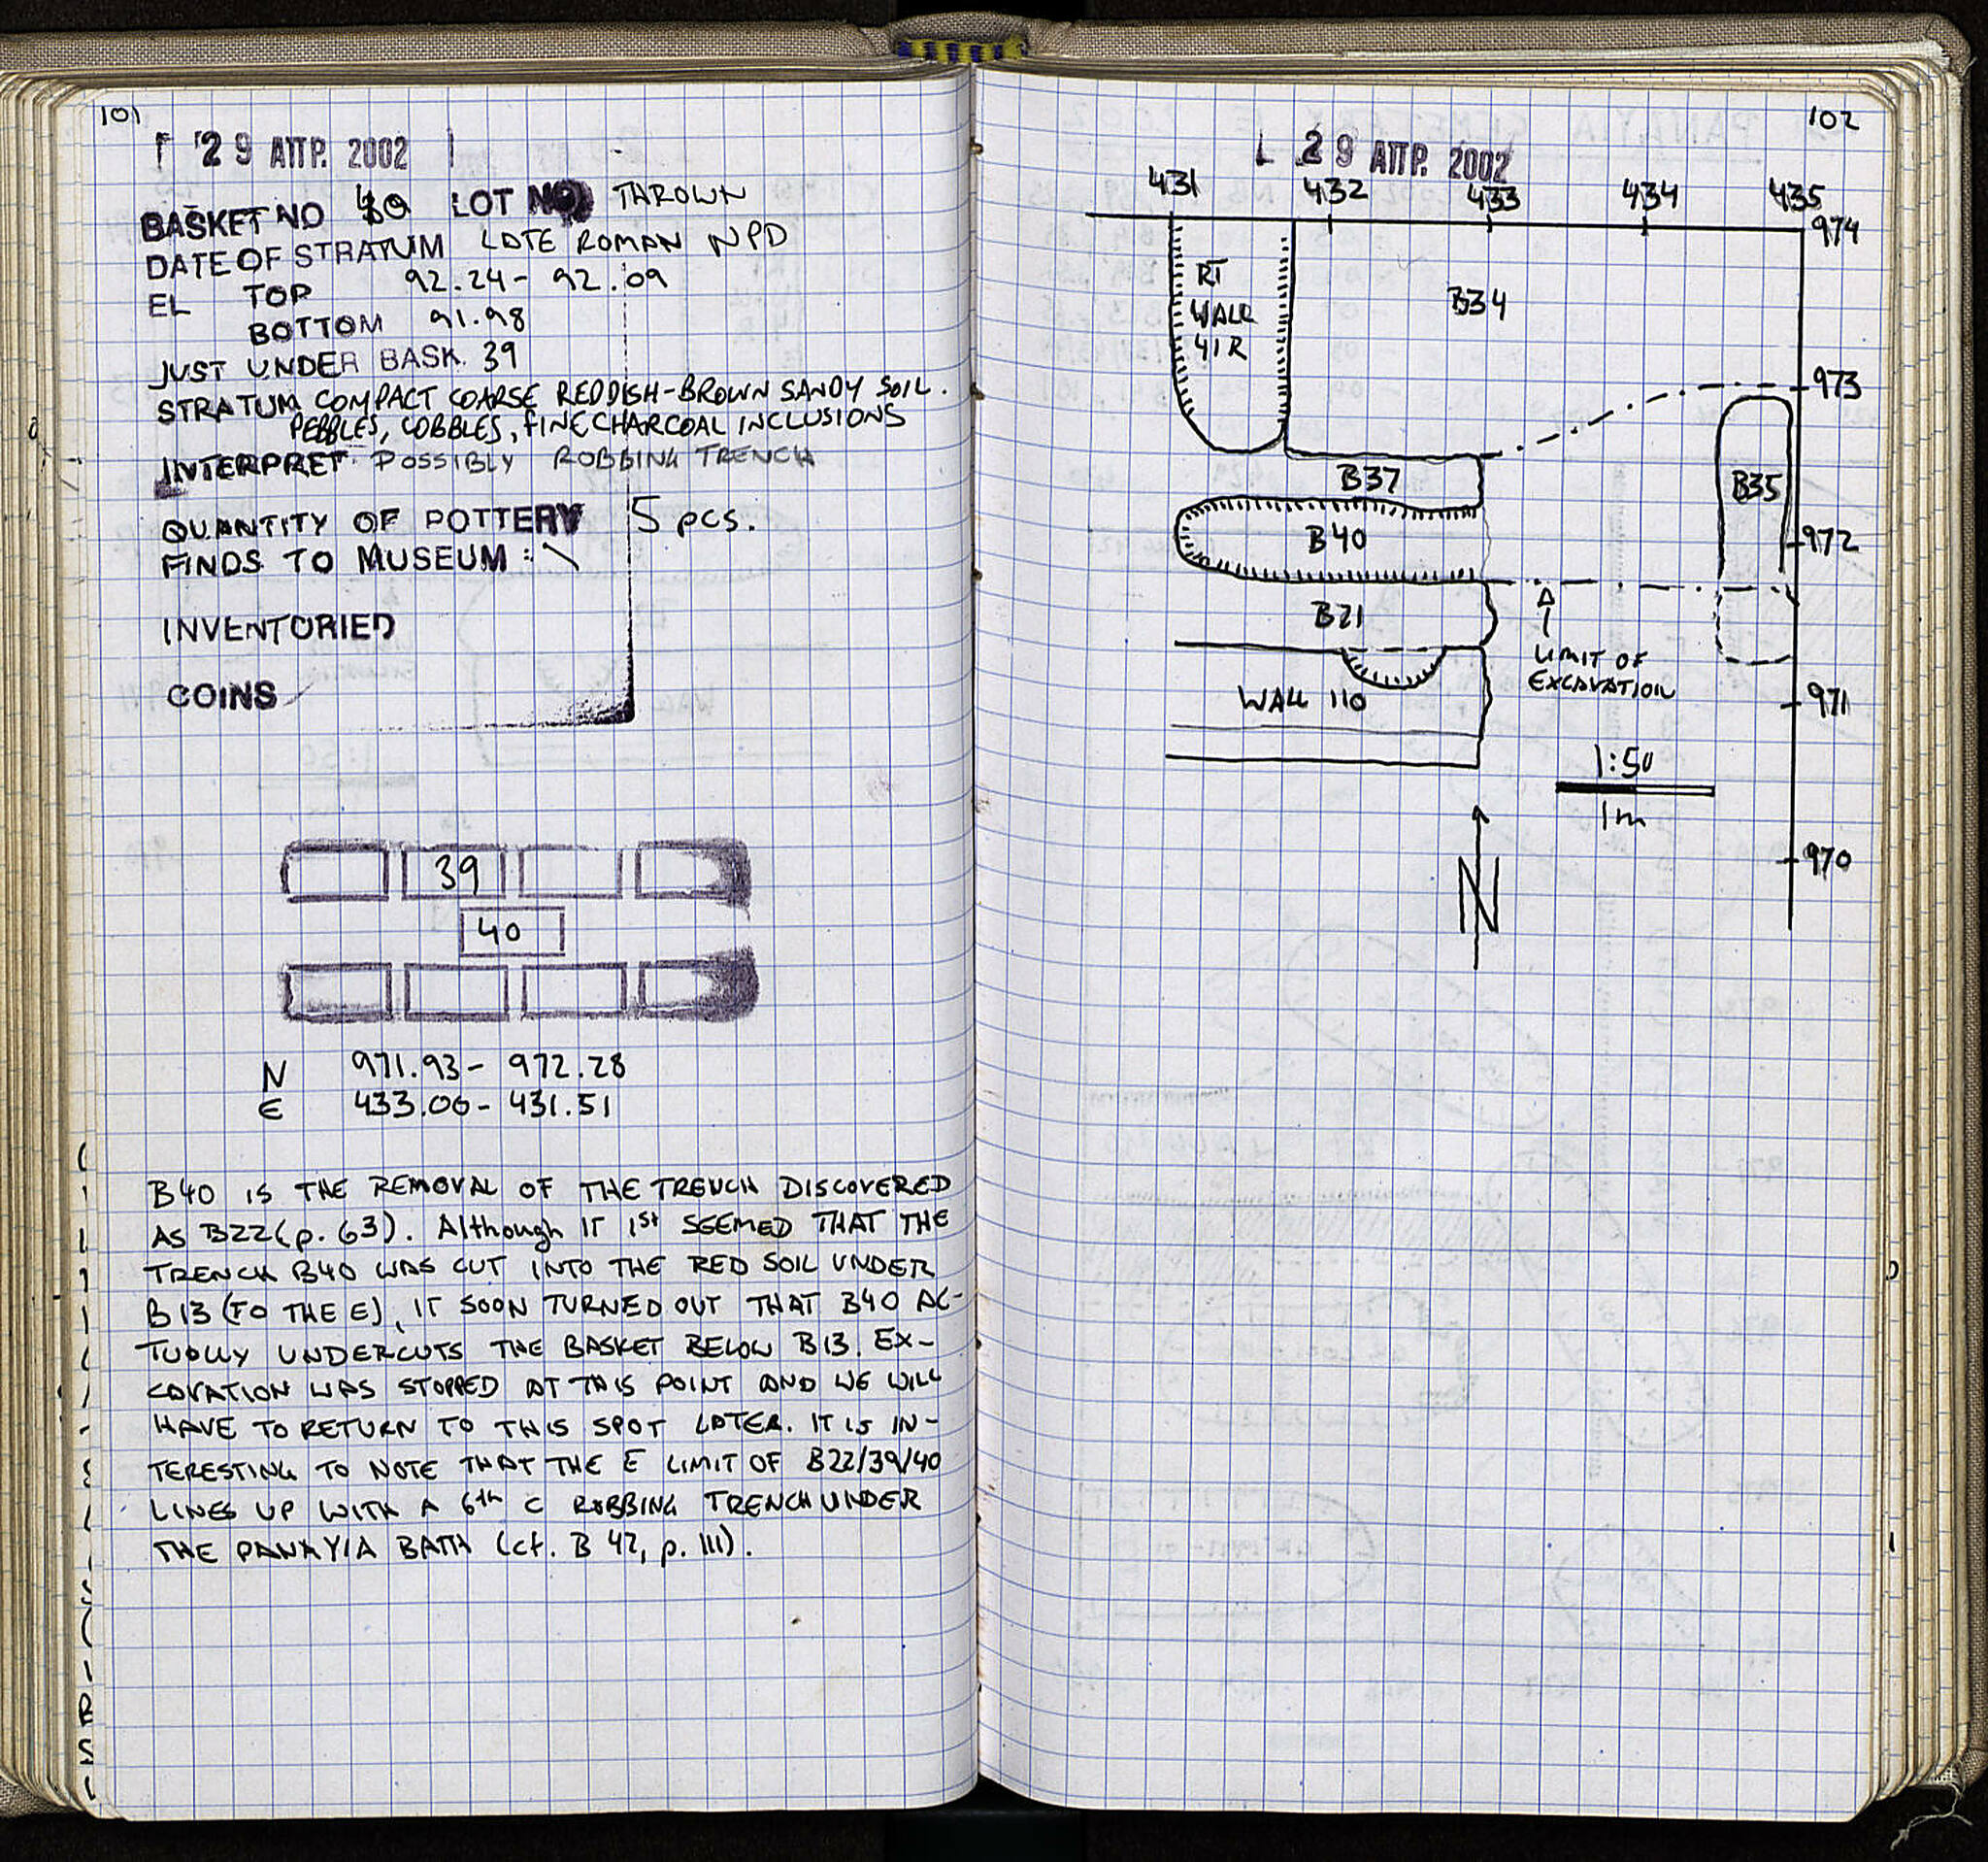 101
29 ΑΠΡ. 2002
BASKET NO 40 LOT NO THROWN
DATE OF STRATUM LATE ROMAN NPD
EL TOP 92.24 - 92.09
BOTTOM 91.98
JUST UNDER BASK. 39
STRATUM COMPACT COARSE REDDISH-BROWN SANDY SOIL.
PEBBLES, COBBLES, FINE CHARCOAL INCLUSIONS
INTERPRET. POSSIBLY ROBBING TRENCH
QUANTITY OF POTTERY 5 pcs.
FINDS TO MUSEUM : \
INVENTORIED
COINS
39
40
N 971.93 - 972.28
E 433.06 - 431.51
B40 IS THE REMOVAL OF THE TRENCH DISCOVERED
AS B22 (p. 63). Although IT 1st SEEMED THAT THE
TRENCH B40 WAS CUT INTO THE RED SOIL UNDER
B13 (TO THE E), IT SOON TURNED OUT THAT B40 AC-
TUALLY UNDERCUTS THE BASKET BELOW B13. EX-
CAVATION WAS STOPPED AT THIS POINT AND WE WILL
HAVE TO RETURN TO THIS SPOT LATER. IT IS IN-
TERESTING TO NOTE THAT THE E LIMIT OF B22/39/40
LINES UP WITH A 6th C ROBBING TRENCH UNDER
THE PANAYIA BATH (cf. B 42, p. 111).
102
29 ΑΠΡ. 2002
431 432 433 434 435
974
RT
WALL
41R
B34
973
B37
B35
B40
972
B21
LIMIT OF
EXCAVATION
WALL 110
971
1:50
1m
970
N